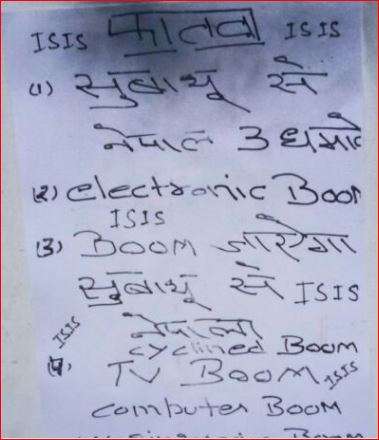 ISIS फातवा ISIS
(1) सुबाथू से
नेपाल 3 धमाके
(2) electronic Boom
ISIS
(3) BOOM जाएगा
सुबाथू से ISIS
नेपाल
ISIS cyclined Boom
(4) TV BOOM ISIS
computer BOOM